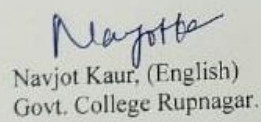 Navjot
Navjot Kaur, (English)
Govt. College Rupnagar.